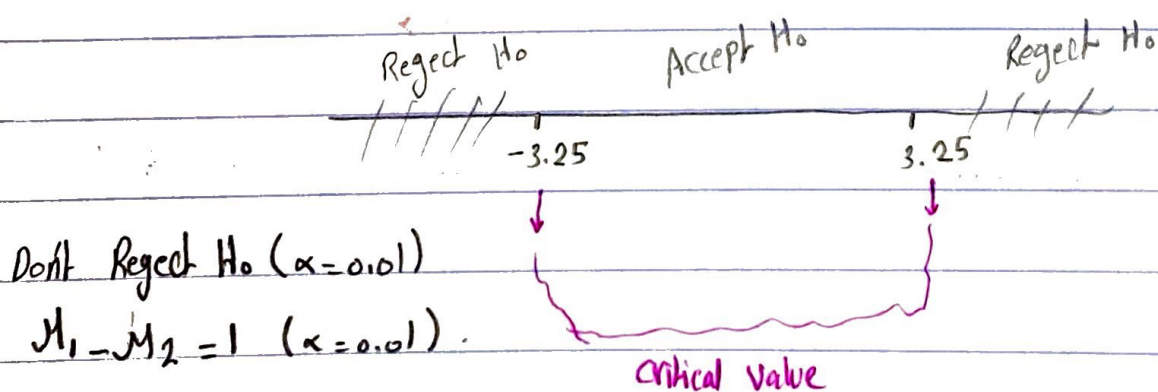 Reject Ho Accept Ho Reject Ho
-3.25 3.25
Don't Reject Ho (α=0.01)
M₁-M₂ = 1 (α=0.01).
Critical value